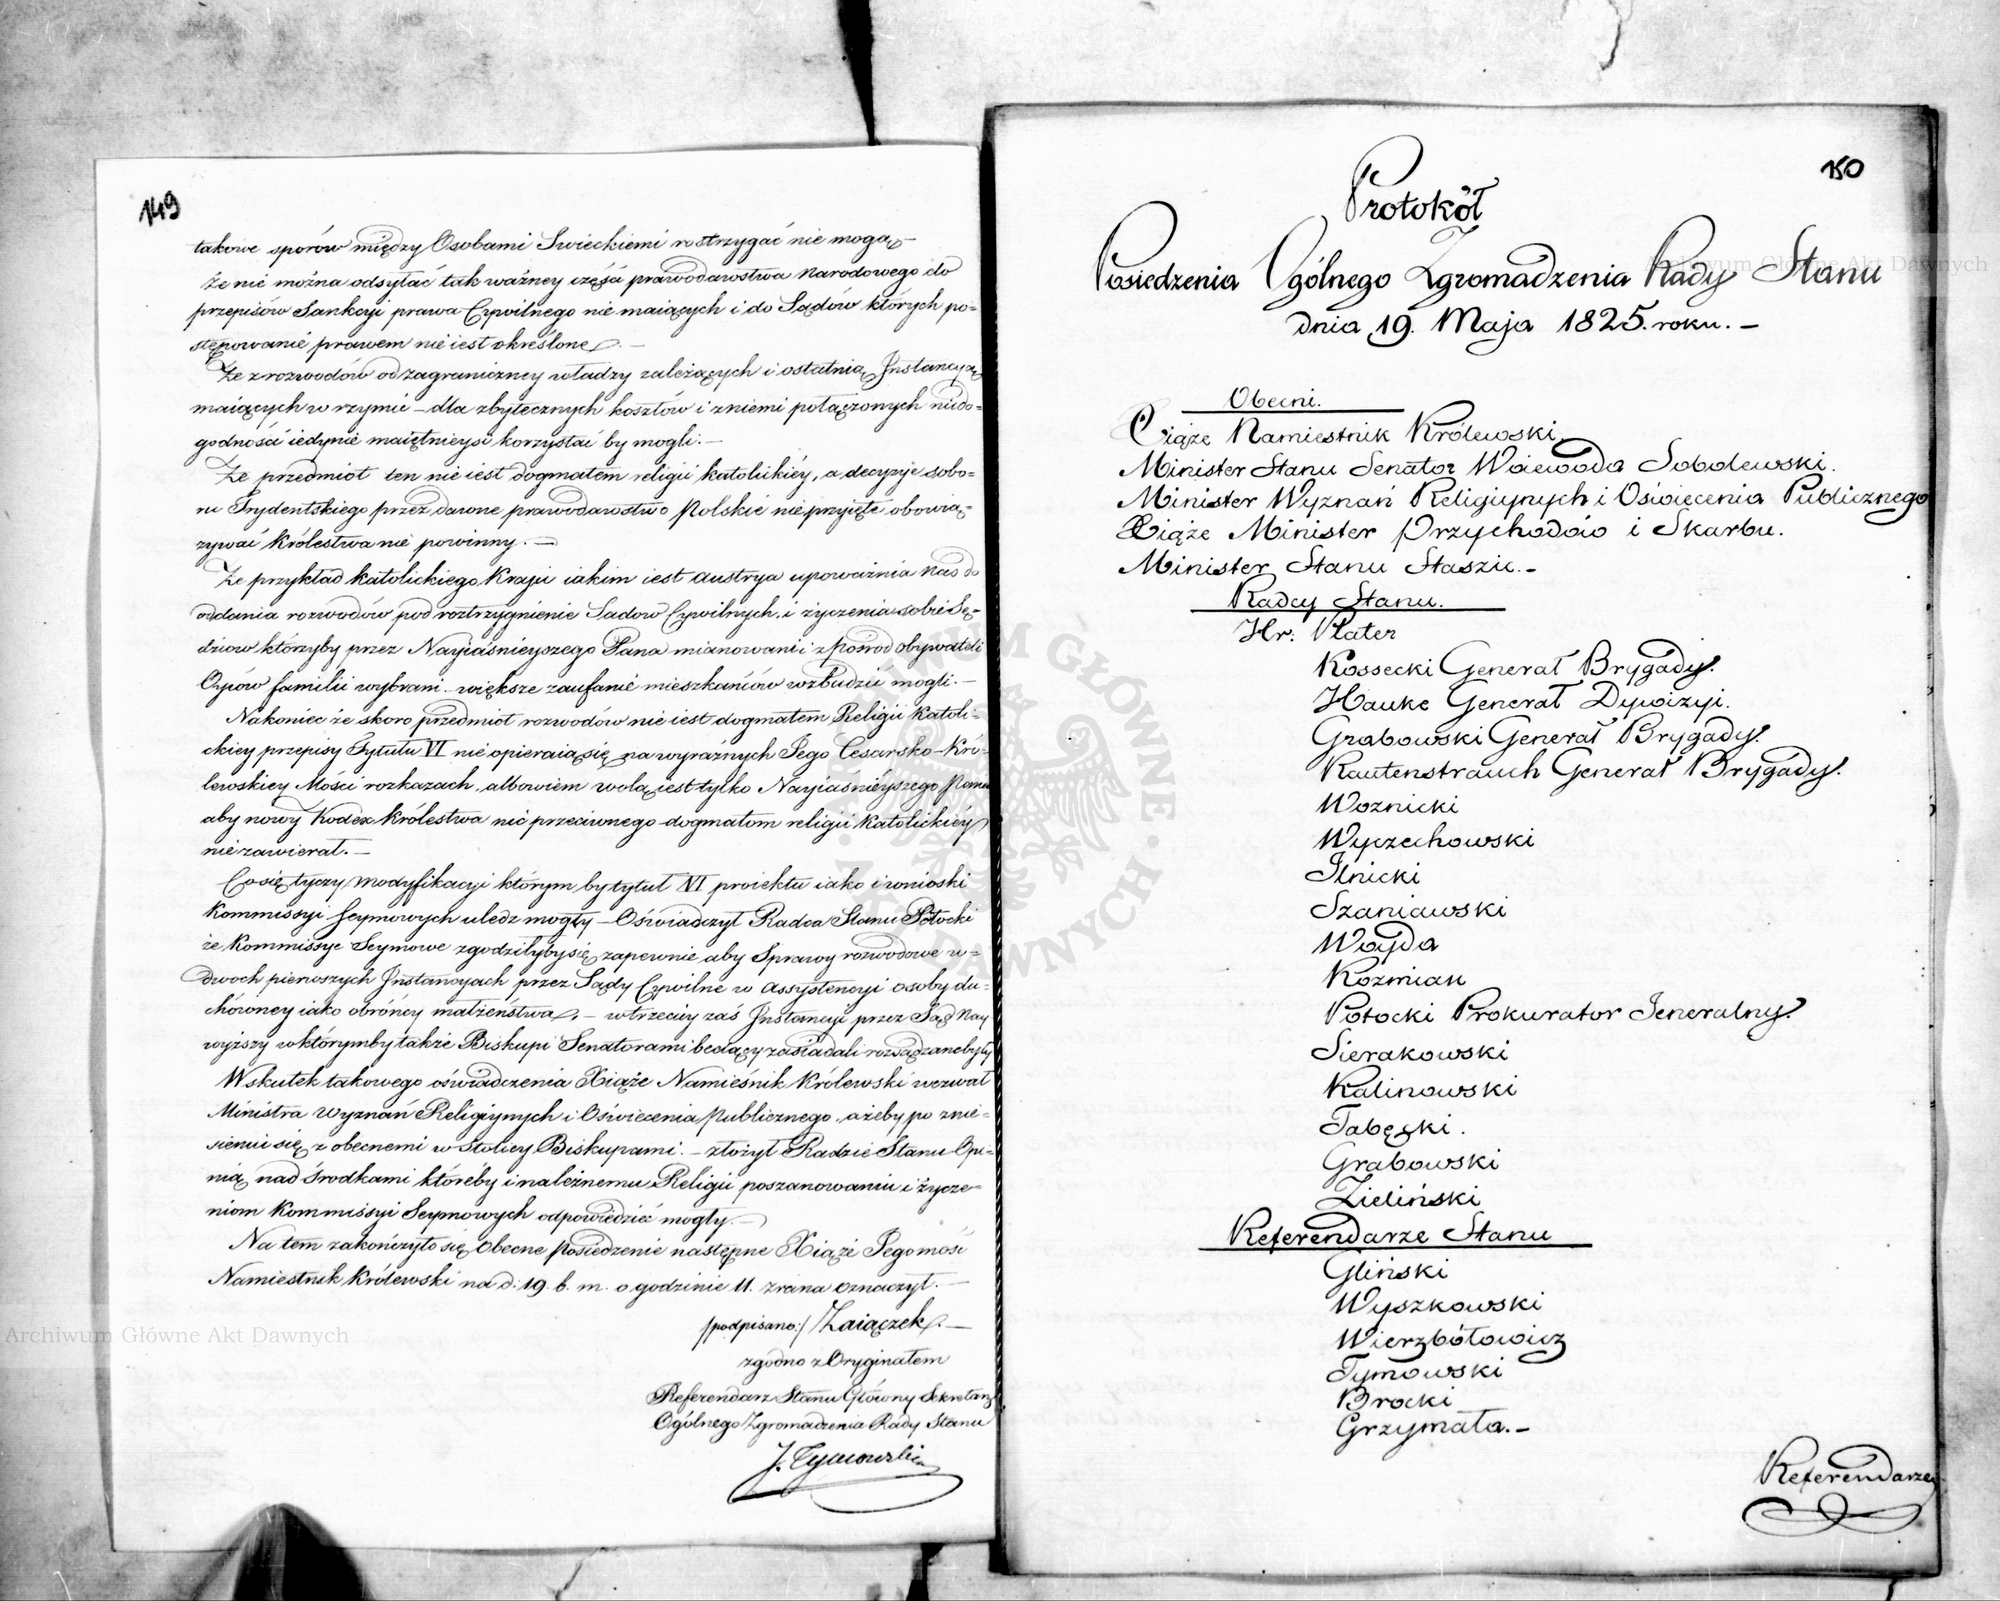 149
takowe sporów między Osobami Swieckiemi rostrzygać nie mogą –
Że nie można odsyłać tak ważney części prawodawstwa Narodowego do
przepisów Sankcyi prawa Cywilnego nie maiących i do Sądów których po=
stępowanie prawem nie iest określone. –
Że z rozwodów od zagraniczney władzy zależących i ostatnią Instancyą
maiących w rzymie – dla zbytecznych kosztów i z niemi połączonych niedo=
godność iedynie maiętnieysi korzystać by mogli. –
Że przedmiot ten nie iest dogmatem religii katolickiéy, a decyzye sobo=
ru Trydentskiego przez dawne prawodawstwo Polskie nie przyięte obowią=
zywać Królestwa nie powinny. –
Że przykład katolickiego Kraju iakim iest Austrya upoważnia nas do
oddania rozwodów pod roztrzygnienie Sadow Cywilnych, i życzenia sobie Sę=
dziow którzyby przez Nayiaśnieyszego Pana mianowani i z pośrod obywateli
Oyców familii wybrani – większe zaufanie mieszkańców wzbudzić mogli. –
Nakoniec że skoro przedmiot rozwodów nie iest dogmatem Religii katoli=
ckiey przepisy Tytułu VI nie opieraią się na wyraźnych Jego Cesarsko-Kró=
lewskiey Mości rozkazach, albowiem wolą iest tylko Nayiaśnieyszego Pana
aby nowy Kodex królestwa nic przeciwnego dogmatom religii katolickiéy
nie zawierał. –
Co się tyczy modyfikacyi którym by tytuł VI proiektu iako i wnioski
Kommissyi Seymowych uledz mogły – Oświadczył Radca Stanu Potocki
że Kommissye Seymowe zgodziłyby się zapewnie aby Sprawy rozwodowe w=
dwoch pierwszych Instancyach przez Sądy Cywilne w assystencyi osoby du=
chówney iako obróńcy małżeństwa, – w trzeciey zaś Instancyi przez Sąd Nay
wyższy w którymby także Biskupi Senatorami będący zasiadali rozsądzane były
W skutek takowego oświadczenia Xiąże Namieśnik Królewski wezwał
Ministra Wyznań Religiynych i Oświecenia publicznego, ażeby po znie=
sieniu się z obecnemi w Stolicy Biskupami. – złożył Radzie Stanu Opi=
nią nad środkami któreby i należnemu Religii poszanowaniu i życze=
niom Kommissyi Seymowych odpowiedzieć mogły. –
Na tem zakończyło się obecne posiedzenie następne Xiąże Jegomość
Namiestnik Królewski na d. 19. b. m. o godzinie 11. zrana oznaczył. –
/podpisano:/ Zaiączek. –
zgodno z Oryginałem
Referendarz Stanu Główny Sekretarz
Ogólnego Zgromadzenia Rady Stanu
J. Tymowski
150
Protokół
Posiedzenia Ogólnego Zgromadzenia Rady Stanu
dnia 19. Maja 1825. roku. –
Obecni.
Xiąże Namiestnik Królewski.
Minister Stanu Senator Woiewoda Sobolewski.
Minister Wyznań Religiynych i Oświęcenia Publicznego
Xiąże Minister Przychodów i Skarbu.
Minister Stanu Staszic. –
Radcy Stanu.
Hr: Plater
Kossecki Generał Brygady.
Hauke Generał Dywizyi.
Grabowski Generał Brygady.
Rautenstrauch Generał Brygady.
Woznicki
Wyczechowski
Ilnicki
Szaniawski
Woyda
Kozmian
Potocki Prokurator Jeneralny.
Sierakowski
Kalinowski
Tabęcki.
Grabowski
Zieliński
Referendarze Stanu
Gliński
Wyszkowski
Wierzbółowicz
Tymowski
Brocki
Grzymała. –
Referendarze
Archiwum Główne Akt Dawnych
Archiwum Główne Akt Dawnych
ARCHIWUM GŁÓWNE AKT DAWNYCH